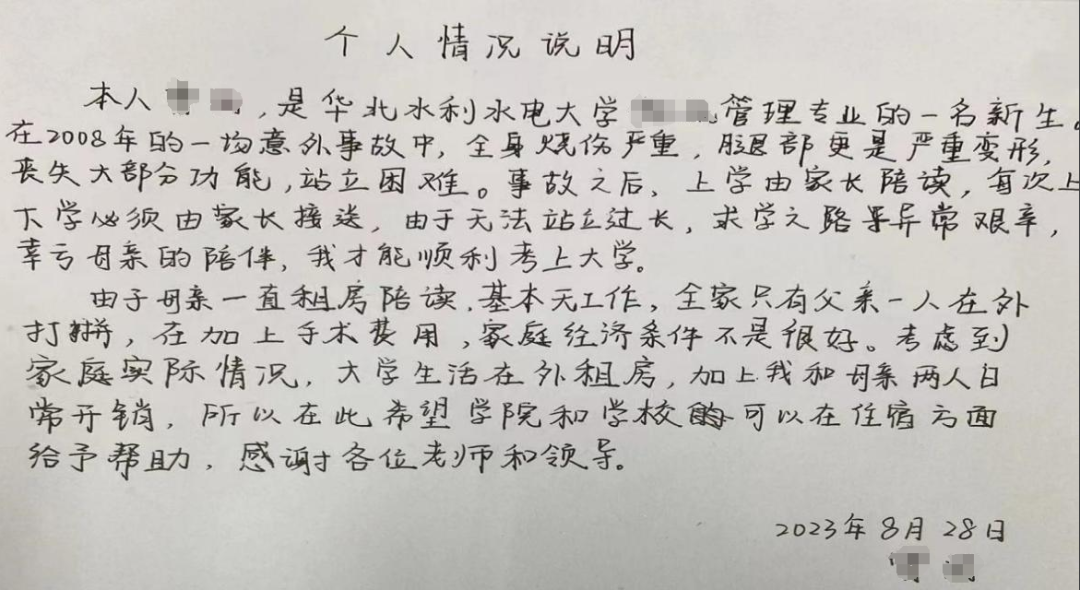 个人情况说明
本人，是华北水利水电大学管理专业的一名新生。
在2008年的一场意外事故中，全身烧伤严重，腿部更是严重变形，
丧失大部分功能，站立困难。事故之后，上学由家长陪读，每次上
下学必须由家长接送，由于无法站立过长，求学之路异常艰辛，
幸亏母亲的陪伴，我才能顺利考上大学。
由于母亲一直租房陪读，基本无工作，全家只有父亲一人在外
打拼，在加上手术费用，家庭经济条件不是很好。考虑到
家庭实际情况，大学生活在外租房，加上我和母亲两人日
常开销，所以在此希望学院和学校可以在住宿方面
给予帮助，感谢各位老师和领导。
2023年8月28日